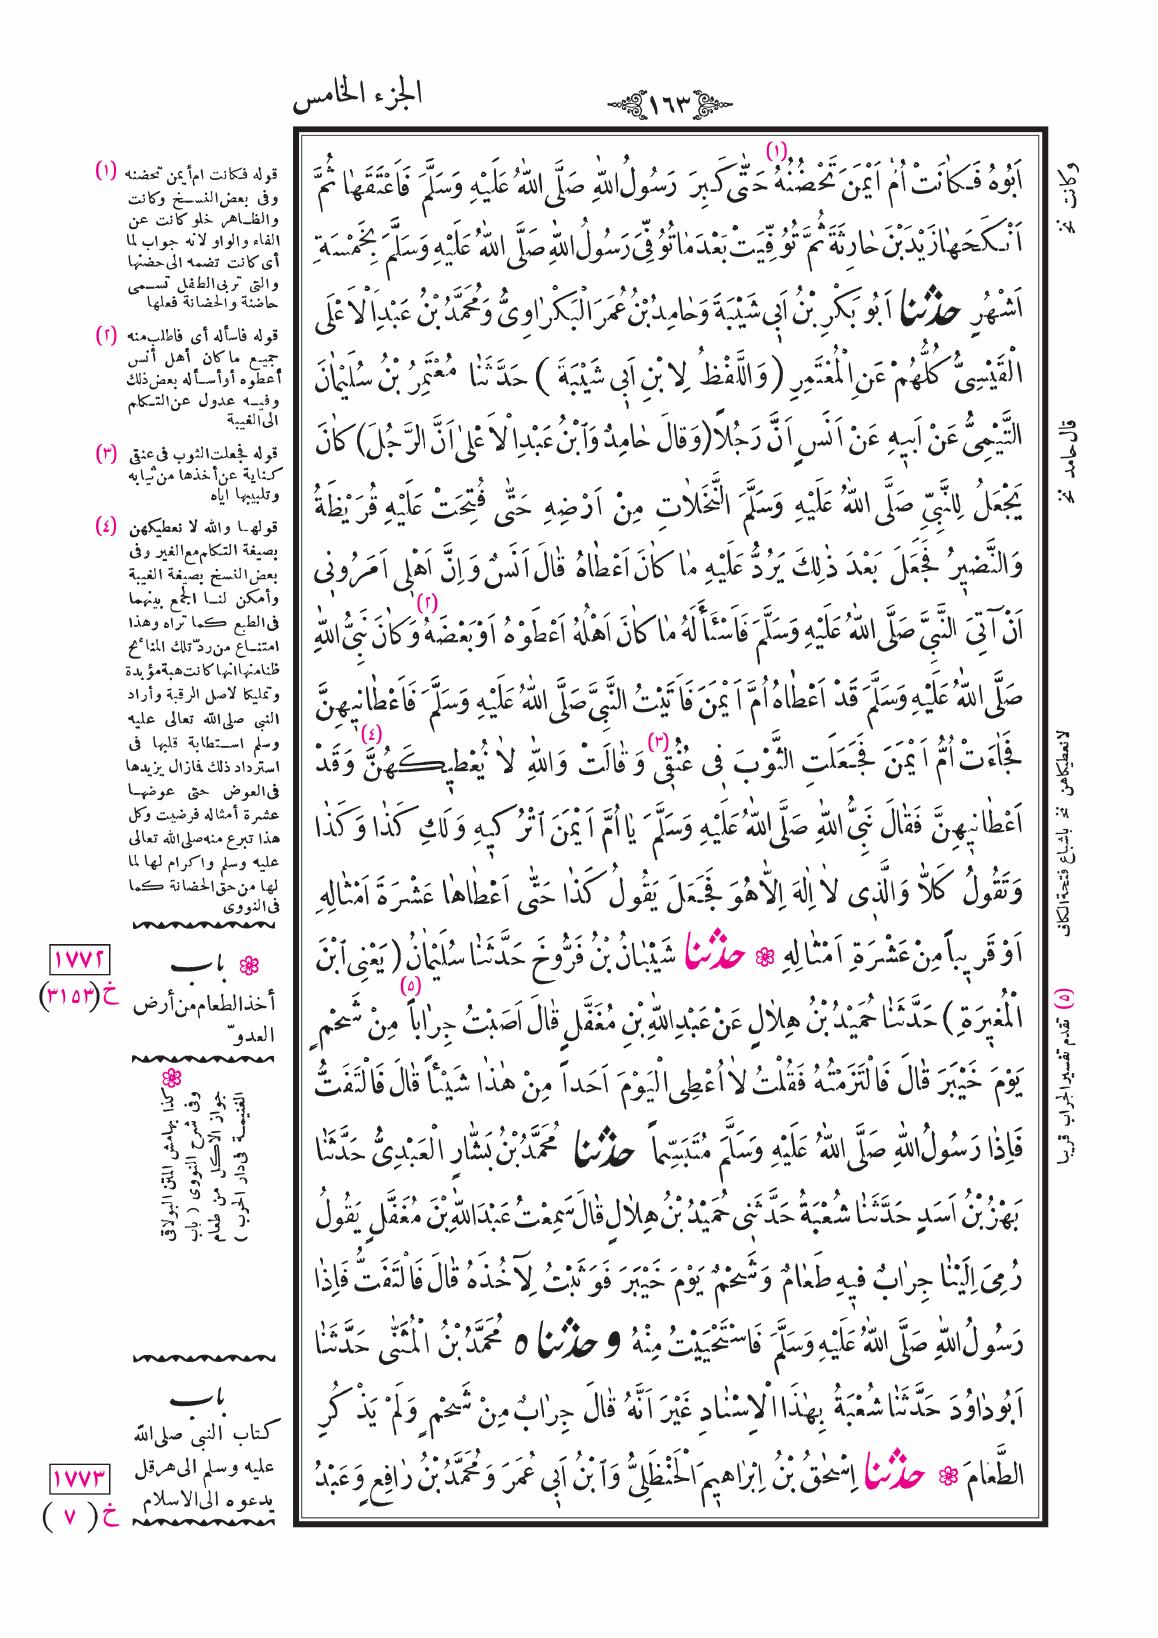 الجزء الخامس
١٦٣
اَبُوهُ فَكَانَتْ اُمُّ اَيْمَنَ تَحْضُنُهُ (١) حَتّٰى كَبِرَ رَسُولُ اللّٰهِ صَلَّى اللّٰهُ عَلَيْهِ وَسَلَّمَ فَاَعْتَقَهَا ثُمَّ
اَنْكَحَهَا زَيْدَ بْنَ حَارِثَةَ ثُمَّ تُوُفِّيَتْ بَعْدَ مَا تُوُفِّىَ رَسُولُ اللّٰهِ صَلَّى اللّٰهُ عَلَيْهِ وَسَلَّمَ بِخَمْسَةِ
اَشْهُرٍ حدثنا اَبُو بَكْرِ بْنُ اَبِى شَيْبَةَ وَحَامِدُ بْنُ عُمَرَ الْبَكْرَاوِىُّ وَمُحَمَّدُ بْنُ عَبْدِ الْاَعْلَى
الْقَيْسِىُّ كُلُّهُمْ عَنِ الْمُعْتَمِرِ (وَاللَّفْظُ لِابْنِ اَبِى شَيْبَةَ) حَدَّثَنَا مُعْتَمِرُ بْنُ سُلَيْمَانَ
التَّيْمِىُّ عَنْ اَبِيهِ عَنْ اَنَسٍ اَنَّ رَجُلاً (وَقَالَ حَامِدٌ وَابْنُ عَبْدِ الْاَعْلٰى اَنَّ الرَّجُلَ) كَانَ
يَجْعَلُ لِلنَّبِىِّ صَلَّى اللّٰهُ عَلَيْهِ وَسَلَّمَ النَّخَلَاتِ مِنْ اَرْضِهِ حَتّٰى فُتِحَتْ عَلَيْهِ قُرَيْظَةُ
وَالنَّضِيرُ فَجَعَلَ بَعْدَ ذٰلِكَ يَرُدُّ عَلَيْهِ مَا كَانَ اَعْطَاهُ قَالَ اَنَسٌ وَاِنَّ اَهْلِى اَمَرُونِى
اَنْ آتِىَ النَّبِىَّ صَلَّى اللّٰهُ عَلَيْهِ وَسَلَّمَ فَاَسْئَأَلَهُ مَا كَانَ اَهْلُهُ اَعْطَوْهُ اَوْ بَعْضَهُ (٢) وَكَانَ نَبِىُّ اللّٰهِ
صَلَّى اللّٰهُ عَلَيْهِ وَسَلَّمَ قَدْ اَعْطَاهُ اُمَّ اَيْمَنَ فَاَتَيْتُ النَّبِىَّ صَلَّى اللّٰهُ عَلَيْهِ وَسَلَّمَ فَاَعْطَانِيهِنَّ
فَجَاءَتْ اُمُّ اَيْمَنَ فَجَعَلَتِ الثَّوْبَ فِى عُنُقِى (٣) وَقَالَتْ وَاللّٰهِ لَا نُعْطِيكَهُنَّ (٤) وَقَدْ
اَعْطَانِيهِنَّ فَقَالَ نَبِىُّ اللّٰهِ صَلَّى اللّٰهُ عَلَيْهِ وَسَلَّمَ يَا اُمَّ اَيْمَنَ اتْرُكِيهِ وَلَكِ كَذَا وَكَذَا
وَتَقُولُ كَلَّا وَالَّذِى لَا اِلٰهَ اِلَّا هُوَ فَجَعَلَ يَقُولُ كَذَا حَتّٰى اَعْطَاهَا عَشْرَةَ اَمْثَالِهِ
اَوْ قَرِيباً مِنْ عَشْرَةِ اَمْثَالِهِ ❁ حدثنا شَيْبَانُ بْنُ فَرُّوخَ حَدَّثَنَا سُلَيْمَانُ (يَعْنِى ابْنَ
الْمُغِيرَةِ) حَدَّثَنَا حُمَيْدُ بْنُ هِلَالٍ عَنْ عَبْدِ اللّٰهِ بْنِ مُغَفَّلٍ قَالَ اَصَبْتُ جِرَاباً (٥) مِنْ شَحْمٍ
يَوْمَ خَيْبَرَ قَالَ فَالْتَزَمْتُهُ فَقُلْتُ لَا اُعْطِى الْيَوْمَ اَحَداً مِنْ هٰذَا شَيْئاً قَالَ فَالْتَفَتُّ
فَاِذَا رَسُولُ اللّٰهِ صَلَّى اللّٰهُ عَلَيْهِ وَسَلَّمَ مُتَبَسِّماً حدثنا مُحَمَّدُ بْنُ بَشَّارٍ الْعَبْدِىُّ حَدَّثَنَا
بَهْزُ بْنُ اَسَدٍ حَدَّثَنَا شُعْبَةُ حَدَّثَنِى حُمَيْدُ بْنُ هِلَالٍ قَالَ سَمِعْتُ عَبْدَ اللّٰهِ بْنَ مُغَفَّلٍ يَقُولُ
رُمِىَ اِلَيْنَا جِرَابٌ فِيهِ طَعَامٌ وَشَحْمٌ يَوْمَ خَيْبَرَ فَوَثَبْتُ لِآخُذَهُ قَالَ فَالْتَفَتُّ فَاِذَا
رَسُولُ اللّٰهِ صَلَّى اللّٰهُ عَلَيْهِ وَسَلَّمَ فَاسْتَحْيَيْتُ مِنْهُ وحدثناه مُحَمَّدُ بْنُ الْمُثَنَّى حَدَّثَنَا
اَبُو دَاوُدَ حَدَّثَنَا شُعْبَةُ بِهٰذَا الْاِسْنَادِ غَيْرَ اَنَّهُ قَالَ جِرَابٌ مِنْ شَحْمٍ وَلَمْ يَذْكُرِ
الطَّعَامَ ❁ حدثنا اِسْحٰقُ بْنُ اِبْرَاهِيمَ الْحَنْظَلِىُّ وَابْنُ اَبِى عُمَرَ وَمُحَمَّدُ بْنُ رَافِعٍ وَعَبْدُ
(١) قوله فكانت ام أيمن تحضنه
وفى بعض النسخ وكانت
والظاهر خلو كانت عن
الفاء والواو لانه جواب لما
أى كانت تضمه الى حضنها
والتى تربى الطفل تسمى
حاضنة والحضانة فعلها
(٢) قوله فاسأله أى فاطلب منه
جميع ما كان أهل أنس
أعطوه أو أسأله بعض ذلك
وفيه عدول عن التكلم
الى الغيبة
(٣) قوله فجعلت الثوب فى عنقى
كناية عن أخذها من ثيابه
وتلبيبها اياه
(٤) قولها والله لا نعطيكهن
بصيغة التكلم مع الغير وفى
بعض النسخ بصيغة الغيبة
وأمكن لنا الجمع بينهما
فى الطبع كما تراه وهذا
امتناع من ردّ تلك المنائح
ظنا منها انها كانت هبة مؤبدة
وتمليكا لاصل الرقبة وأراد
النبى صلى الله تعالى عليه
وسلم استطابة قلبها فى
استرداد ذلك فمازال يزيدها
فى العوض حتى عوضها
عشرة أمثاله فرضيت وكل
هذا تبرع منه صلى الله تعالى
عليه وسلم واكرام لها لما
لها من حق الحضانة كما
فى النووى
❁ باب
١٧٧٢
خ (٣١٥٣)
أخذ الطعام من أرض
العدوّ
❁ كذا بهامش المتن البولاقى
وفى شرح النووى (باب
جواز الاكل من طعام
الغنيمة فى دار الحرب)
باب
كتاب النبى صلى الله
عليه وسلم الى هرقل
يدعوه الى الاسلام
١٧٧٣
خ (٧)
وكانت نخ
قال حامد نخ
لا نعطيكاهن نخ باشباع فتحة الكاف
(٥) تقدم تفسير الجراب قريبا